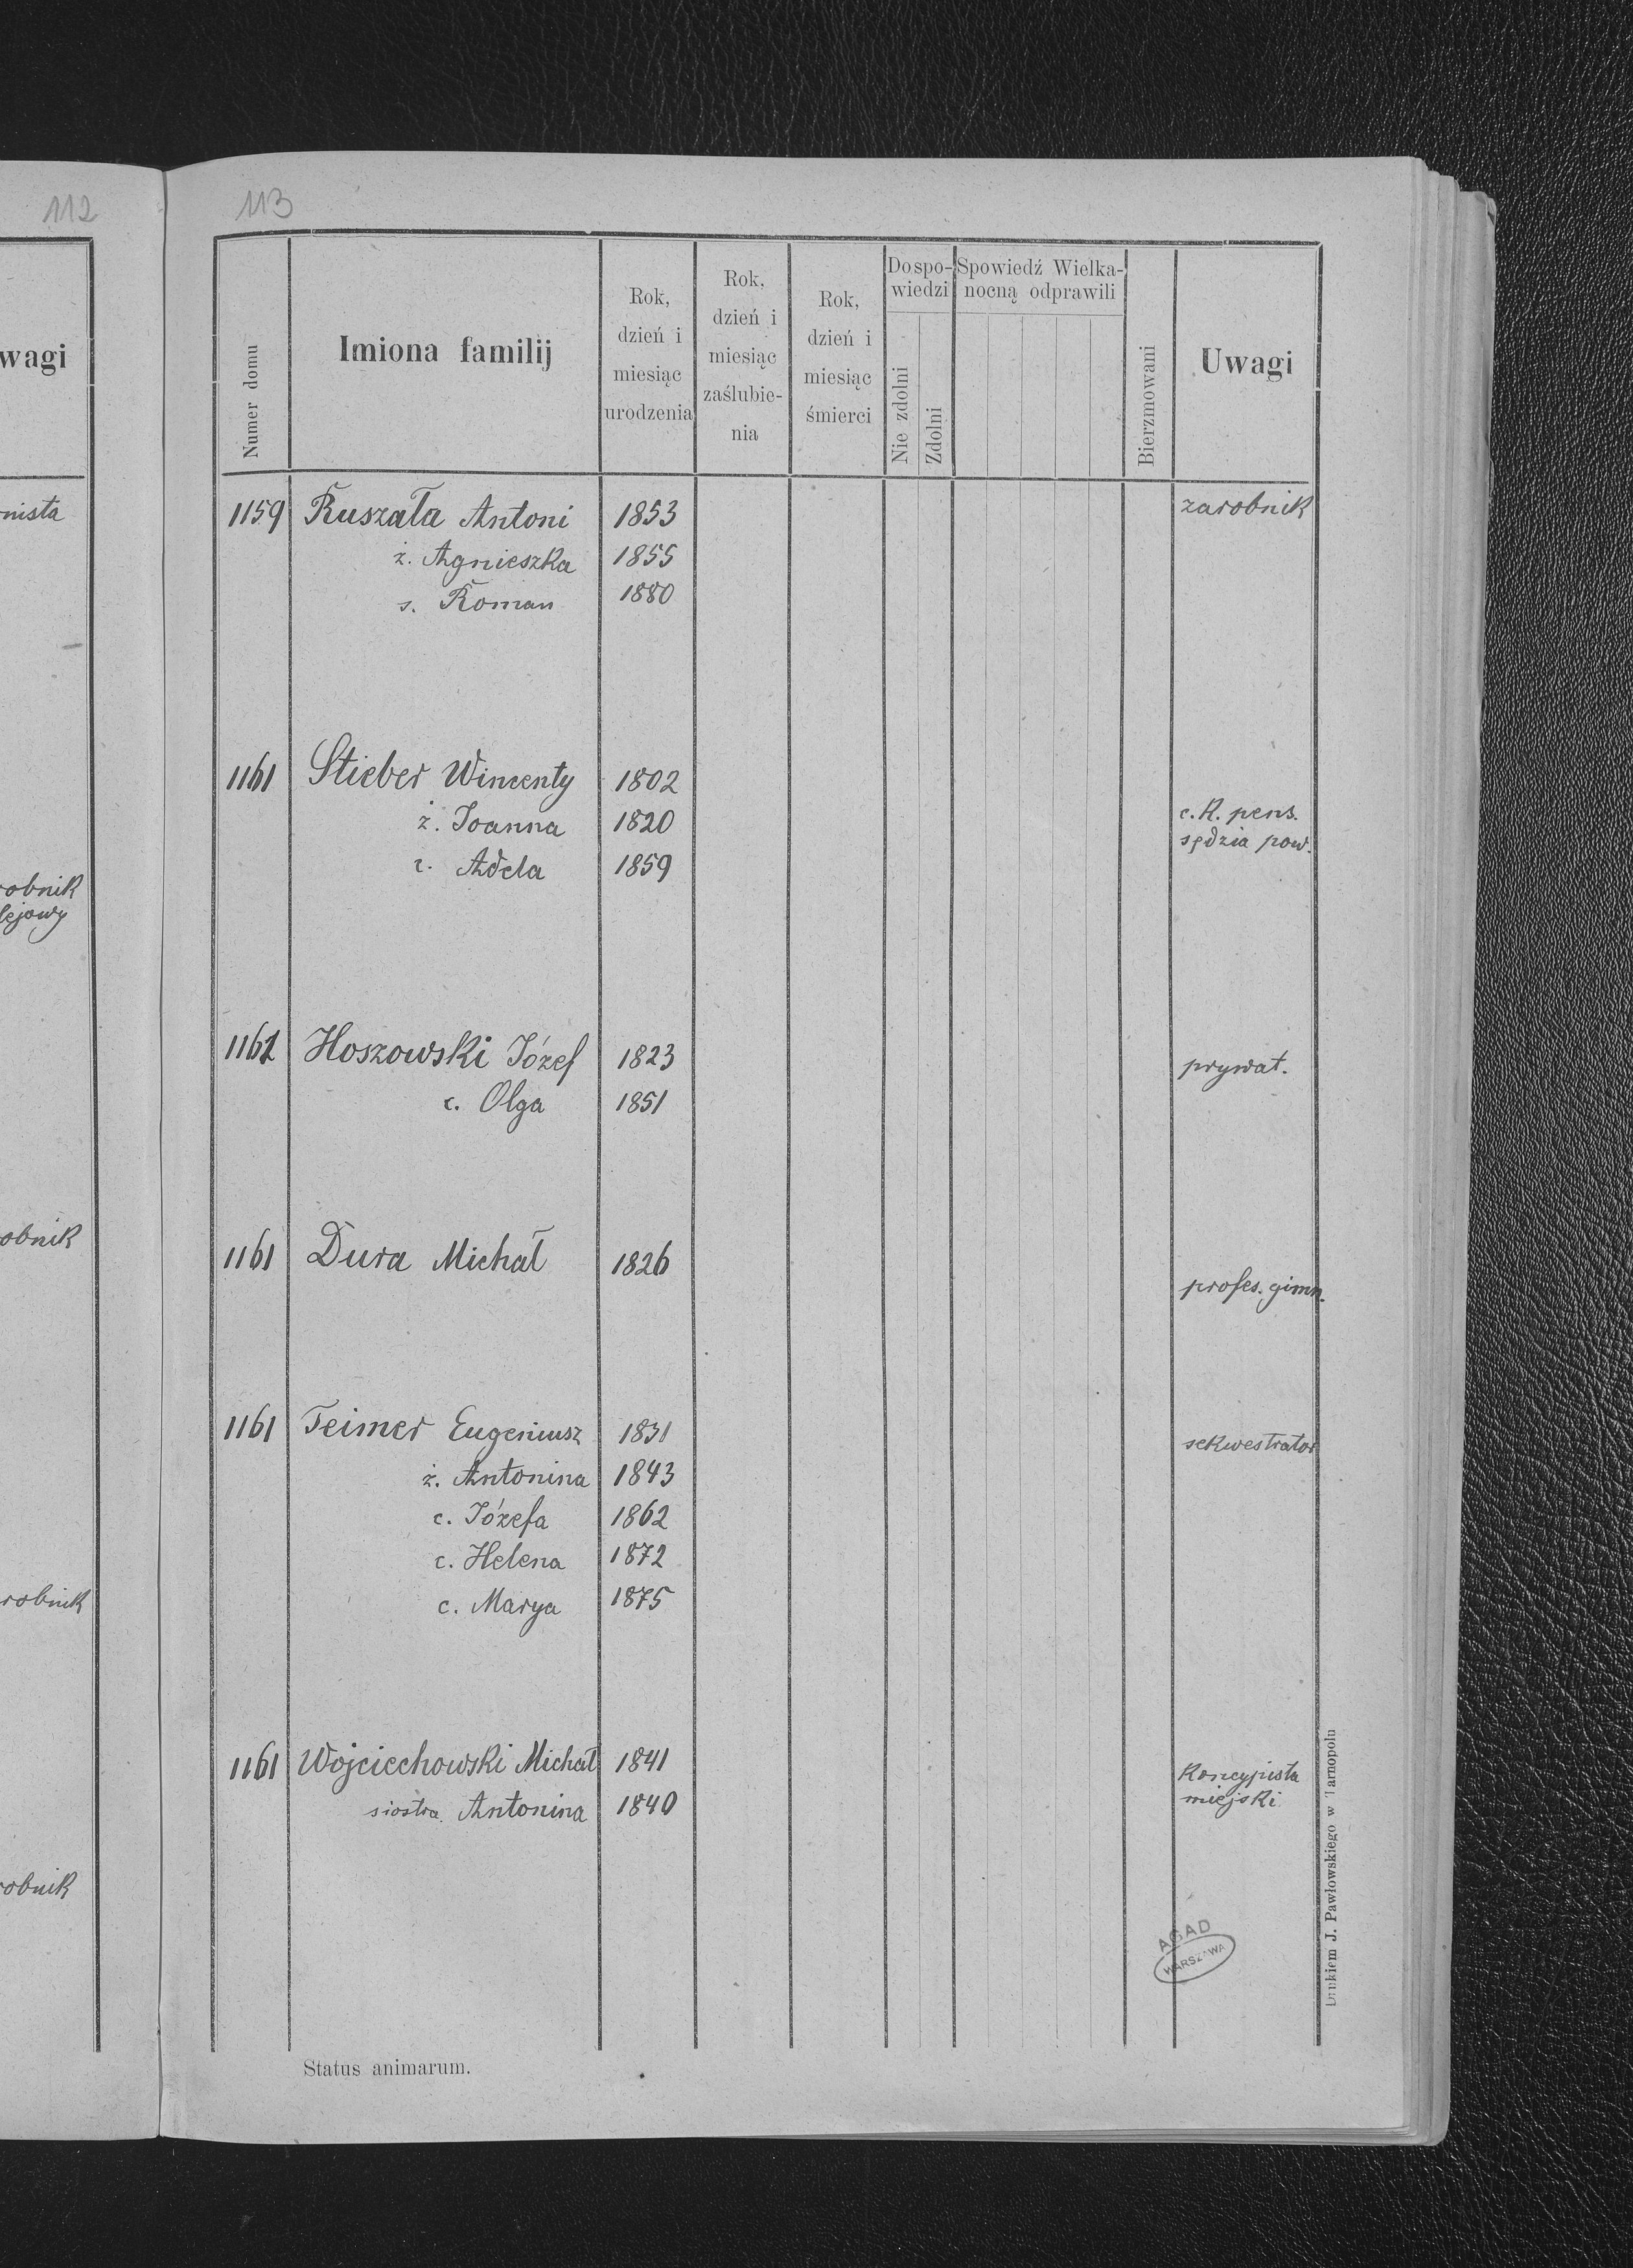 112
113
wagi
Numer domu
Imiona familij
Rok,
dzień i
miesiąc
urodzenia
Rok,
dzień i
miesiąc
zaślubie-
nia
Rok,
dzień i
miesiąc
śmierci
Do spo-
wiedzi
Nie zdolni
Zdolni
Spowiedź Wielka-
nocną odprawili
Bierzmowani
Uwagi
nista
1159 Ruszała Antoni 1853 zarobnik
ż. Agnieszka 1855
s. Roman 1880
1161 Stieber Wincenty 1802
ż. Joanna 1820 c. k. pens.
sędzia pow.
c. Adela 1859
robnik
lejowy
1161 Hoszowski Józef 1823 prywat.
c. Olga 1851
obnik
1161 Dura Michał 1826
profes. gimn.
1161 Teimer Eugeniusz 1831 sekwestrator
ż. Antonina 1843
c. Józefa 1862
c. Helena 1872
c. Marya 1875
robnik
1161 Wojciechowski Michał 1841 koncypista
siostra Antonina 1840 miejski
obnik
AGAD
WARSZAWA
Drukiem J. Pawłowskiego w Tarnopolu
Status animarum.